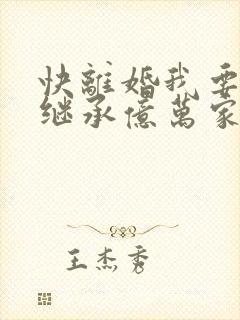 快離婚我要
继承億萬家
王杰秀